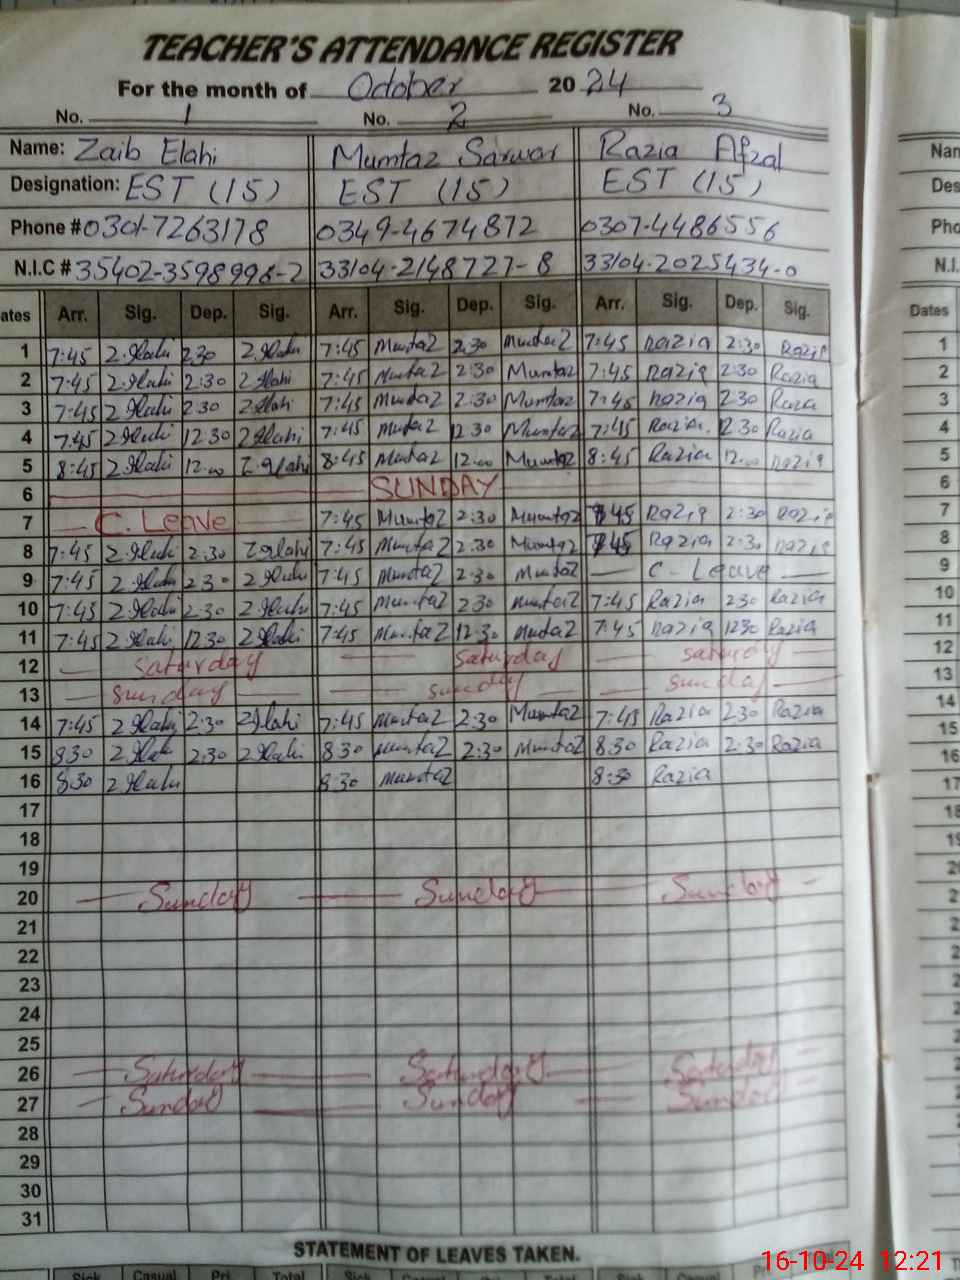 TEACHER'S ATTENDANCE REGISTER
For the month of October 2024
No. 1 No. 2 No. 3
Name: Zaib Elahi Mumtaz Sarwar Razia Afzal
Designation: EST (15) EST (15) EST (15)
Phone # 0301-7263178 0349-4674872 0307-4486556
N.I.C # 35402-3598996-2 33104-2148727-8 33104-2025434-0
ates Arr. Sig. Dep. Sig. Arr. Sig. Dep. Sig. Arr. Sig. Dep. Sig. Dates
1 7:45 Z.Elahi 2:30 Z.Elahi 7:45 Mumtaz 2:30 Mumtaz 7:45 Razia 2:30 Razia 1
2 7:45 Z.Elahi 2:30 Z.Elahi 7:45 Mumtaz 2:30 Mumtaz 7:45 Razia 2:30 Razia 2
3 7:45 Z.Elahi 2:30 Z.Elahi 7:45 Mumtaz 2:30 Mumtaz 7:45 Razia 2:30 Razia 3
4 7:45 Z.Elahi 12:30 Z.Elahi 7:45 Mumtaz 12:30 Mumtaz 7:45 Razia 12:30 Razia 4
5 8:45 Z.Elahi 12:00 Z.Elahi 8:45 Mumtaz 12:00 Mumtaz 8:45 Razia 12:00 Razia 5
6 SUNDAY 6
7 C. Leave 7:45 Mumtaz 2:30 Mumtaz 7:45 Razia 2:30 Razia 7
8 7:45 Z.Elahi 2:30 Z.Elahi 7:45 Mumtaz 2:30 Mumtaz 7:45 Razia 2:30 Razia 8
9 7:45 Z.Elahi 2:30 Z.Elahi 7:45 Mumtaz 2:30 Mumtaz C-Leave 9
10 7:45 Z.Elahi 2:30 Z.Elahi 7:45 Mumtaz 2:30 Mumtaz 7:45 Razia 2:30 Razia 10
11 7:45 Z.Elahi 12:30 Z.Elahi 7:45 Mumtaz 12:30 Mumtaz 7:45 Razia 1230 Razia 11
12 Saturday Saturday Saturday 12
13 Sunday Sunday Sunday 13
14 7:45 Z.Elahi 2:30 Z.Elahi 7:45 Mumtaz 2:30 Mumtaz 7:45 Razia 2:30 Razia 14
15 8:30 Z.Elahi 2:30 Z.Elahi 8:30 Mumtaz 2:30 Mumtaz 8:30 Razia 2:30 Razia 15
16 8:30 Z.Elahi 8:30 Mumtaz 8:30 Razia 16
17 17
18
19
20 Sunday Sunday Sunday
21
22
23
24
25
26 Saturday Saturday Saturday
27 Sunday Sunday Sunday
28
29
30
31
STATEMENT OF LEAVES TAKEN.
Sick Casual Pri. Total Sick Casual
16-10-24 12:21